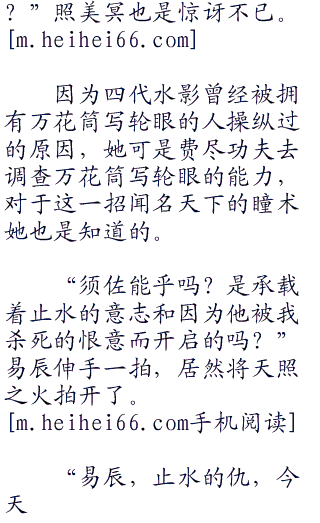 ？”照美冥也是惊讶不已。
[m.heihei66.com]
因为四代水影曾经被拥
有万花筒写轮眼的人操纵过
的原因，她可是费尽功夫去
调查万花筒写轮眼的能力，
对于这一招闻名天下的瞳术
她也是知道的。
“须佐能乎吗？是承载
着止水的意志和因为他被我
杀死的恨意而开启的吗？”
易辰伸手一拍，居然将天照
之火拍开了。
[m.heihei66.com手机阅读]
“易辰，止水的仇，今
天